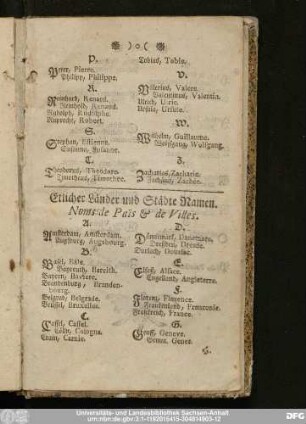 P.
Peter, Pierre.
Philipp, Philippe.
R.
Reinhart, Renard.
Reinhold, Renaud.
Rudolph, Rodolphe.
Ruprecht, Robert.
S.
Stephan, Estienne.
Susanna, Susanne.
T.
Theodorus, Theodore.
Timotheus, Timothée.
Tobias, Tobie.
V.
Valerius, Valere.
Valentinus, Valentin.
Ulrich, Ulric.
Ursula, Ursule.
W.
Wilhelm, Guillaume.
Wolfgang, Wolfgang.
Z.
Zacharias, Zacharie.
Etlicher Länder und Städte Namen.
Noms de Païs & de Villes.
A.
Amsterdam, Amsterdam.
Augsburg, Augsbourg.
B.
Basel, Bâle.
Bayreuth, Bareith.
Bayern, Baviere.
Brandenburg, Brandenbourg.
Belgrad, Belgrade.
Brüssel, Bruxelles.
C.
Cassel, Cassel.
Cölln, Cologne.
D.
Dännemarck, Danemarc.
Dresden, Dresde.
E.
Elsaß, Alsace.
Engelland, Angleterre.
F.
Florenz, Florence.
Franckenland, Franconie.
Franckreich, France.
G.
Genff, Geneve.
Genua, Genes.
Universitäts- und Landesbibliothek Sachsen-Anhalt